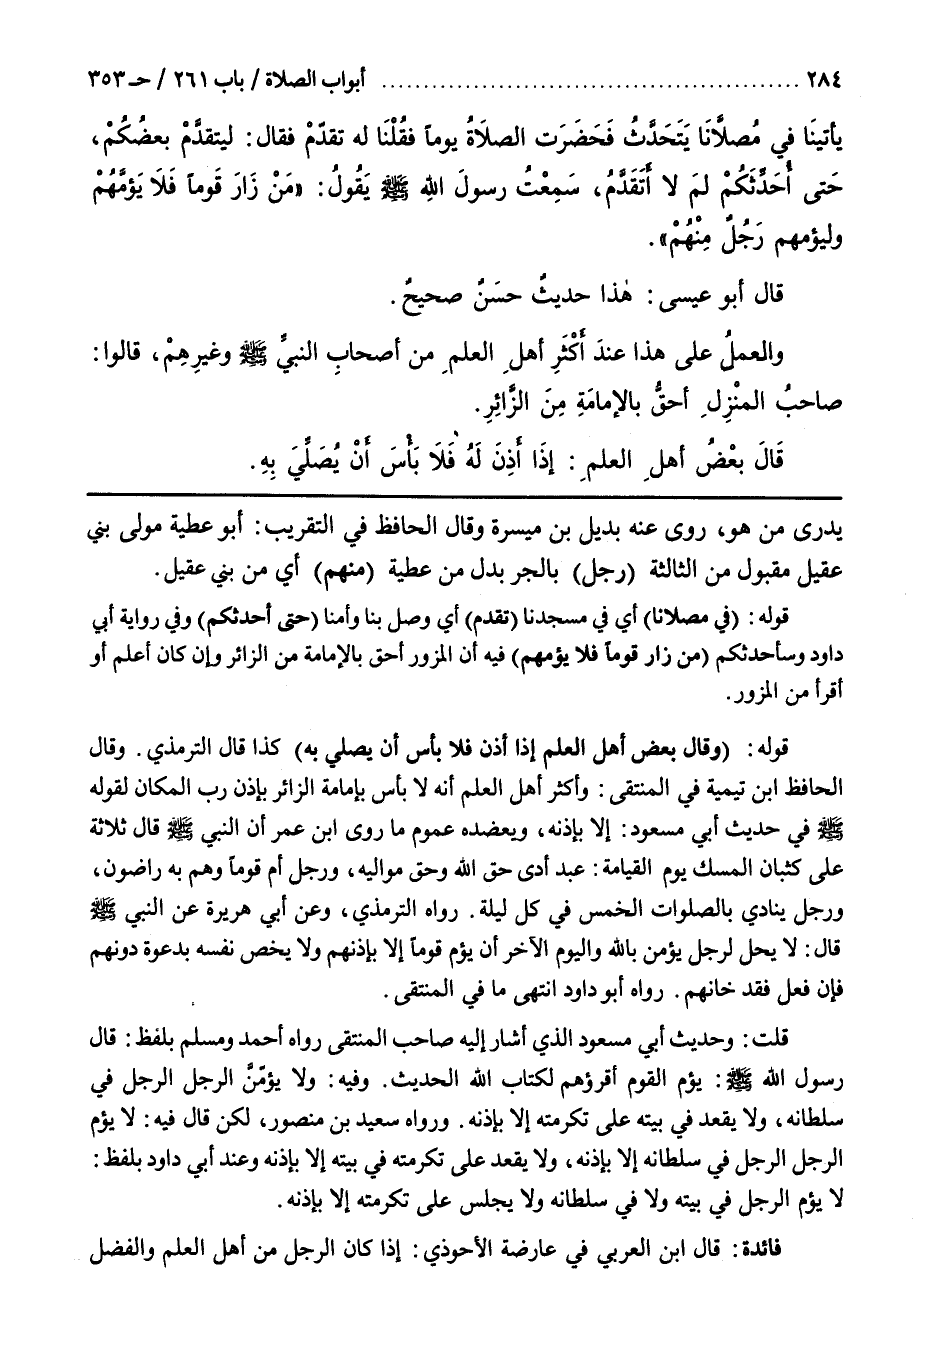 ٢٨٤ ................................................ أبواب الصلاة / باب ٢٦١ / حـ ٣٥٣
يأتينَا في مُصلاَّنَا يَتَحَدَّثُ فَحَضَرَت الصلاَةُ يوماً فقُلْنَا له تقدّمْ فقال: ليتقدَّمْ بعضُكُمْ،
حَتى أُحَدِّثَكُمْ لمَ لا أَتَقَدَّمُ، سَمِعْتُ رسولَ اللهِ ﷺ يَقُولُ: «مَنْ زَارَ قَوماً فَلَا يَؤمَّهُمْ
وليؤمهم رَجُلٌ مِنْهُمْ».
قال أبو عيسى: هٰذا حديثٌ حسَنٌ صحيحٌ.
والعملُ على هذا عندَ أَكْثَرِ أهلِ العلمِ من أصحابِ النبيِّ ﷺ وغيرِهِمْ، قالوا:
صاحبُ المنْزِلِ أحقُّ بالإمامَةِ مِنَ الزَّائِرِ.
قَالَ بعْضُ أهلِ العلمِ: إذَا أَذِنَ لَهُ فَلَا بَأْسَ أَنْ يُصَلِّيَ بِهِ.
يدرى من هو، روى عنه بديل بن ميسرة وقال الحافظ في التقريب: أبو عطية مولى بني
عقيل مقبول من الثالثة (رجل) بالجر بدل من عطية (منهم) أي من بني عقيل.
قوله: (في مصلانا) أي في مسجدنا (تقدم) أي وصل بنا وأمنا (حتى أحدثكم) وفي رواية أبي
داود وسأحدثكم (من زار قوماً فلا يؤمهم) فيه أن المزور أحق بالإمامة من الزائر وإن كان أعلم أو
أقرأ من المزور.
قوله: (وقال بعض أهل العلم إذا أذن فلا بأس أن يصلي به) كذا قال الترمذي. وقال
الحافظ ابن تيمية في المنتقى: وأكثر أهل العلم أنه لا بأس بإمامة الزائر بإذن رب المكان لقوله
ﷺ في حديث أبي مسعود: إلا بإذنه، ويعضده عموم ما روى ابن عمر أن النبي ﷺ قال ثلاثة
على كثبان المسك يوم القيامة: عبد أدى حق الله وحق مواليه، ورجل أم قوماً وهم به راضون،
ورجل ينادي بالصلوات الخمس في كل ليلة. رواه الترمذي، وعن أبي هريرة عن النبي ﷺ
قال: لا يحل لرجل يؤمن بالله واليوم الآخر أن يؤم قوماً إلا بإذنهم ولا يخص نفسه بدعوة دونهم
فإن فعل فقد خانهم. رواه أبو داود انتهى ما في المنتقى.
قلت: وحديث أبي مسعود الذي أشار إليه صاحب المنتقى رواه أحمد ومسلم بلفظ: قال
رسول الله ﷺ: يؤم القوم أقرؤهم لكتاب الله الحديث. وفيه: ولا يؤمّنَّ الرجل الرجل في
سلطانه، ولا يقعد في بيته على تكرمته إلا بإذنه. ورواه سعيد بن منصور، لكن قال فيه: لا يؤم
الرجل الرجل في سلطانه إلا بإذنه، ولا يقعد على تكرمته في بيته إلا بإذنه وعند أبي داود بلفظ:
لا يؤم الرجل في بيته ولا في سلطانه ولا يجلس على تكرمته إلا بإذنه.
فائدة: قال ابن العربي في عارضة الأحوذي: إذا كان الرجل من أهل العلم والفضل